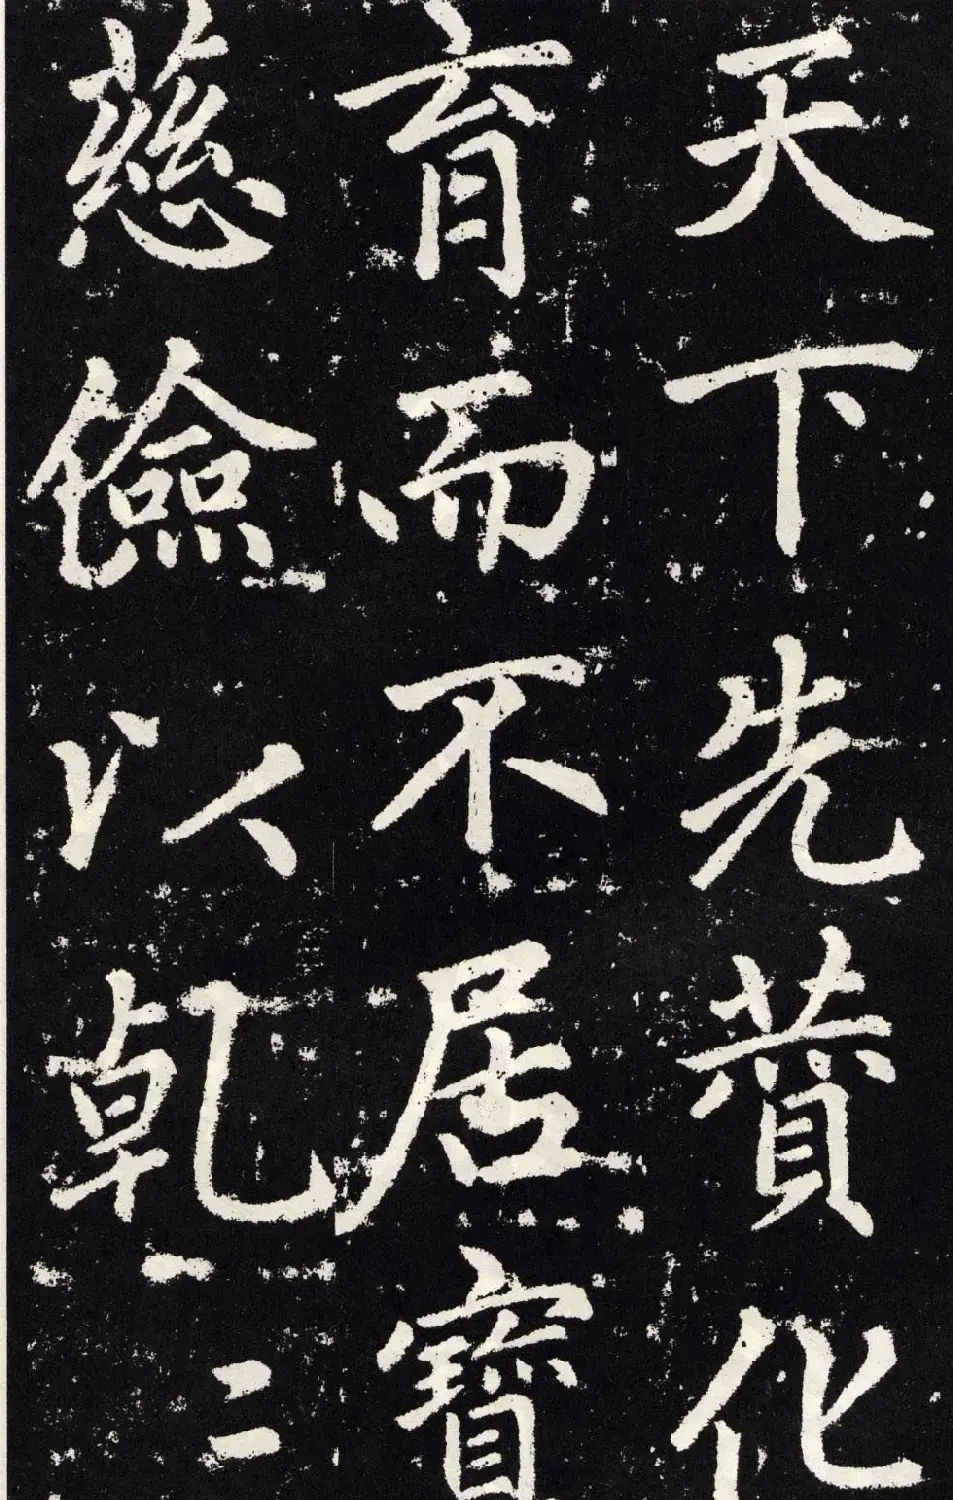 天下先贊化
育而不居寶
慈儉以乾〻